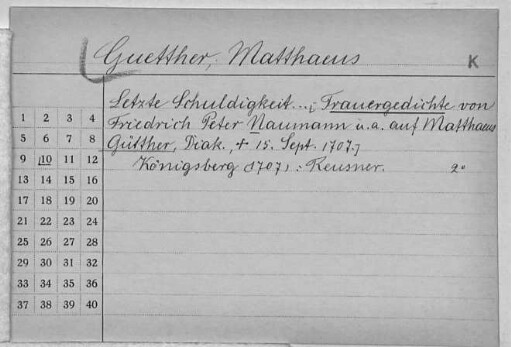 Guetther, Matthaeus
K
Letzte Schuldigkeit... [Trauergedichte von
Friedrich Peter Naumann u.a. auf Matthaeus
Gütther, Diak., + 15. Sept. 1707.]
Königsberg (1707): Reusner. 2°
1 2 3 4
5 6 7 8
9 10 11 12
13 14 15 16
17 18 19 20
21 22 23 24
25 26 27 28
29 30 31 32
33 34 35 36
37 38 39 40